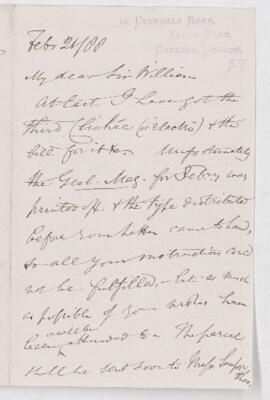 10, EVERDALE ROAD,
CHELSEA, LONDON,
S.W.
Feb 21/88
My dear Sir William
At last I have got the
third Cliché (or electro) & the
bill for it &c. Unfortunately
the Geol. Mag. for Feby was
printed off & the type distributed
before your letter came to hand,
so all your instructions could
not be fulfilled, - but as much
as possible of your wishes have
been & will be attended to. The parcel
shall be sent soon to Messrs